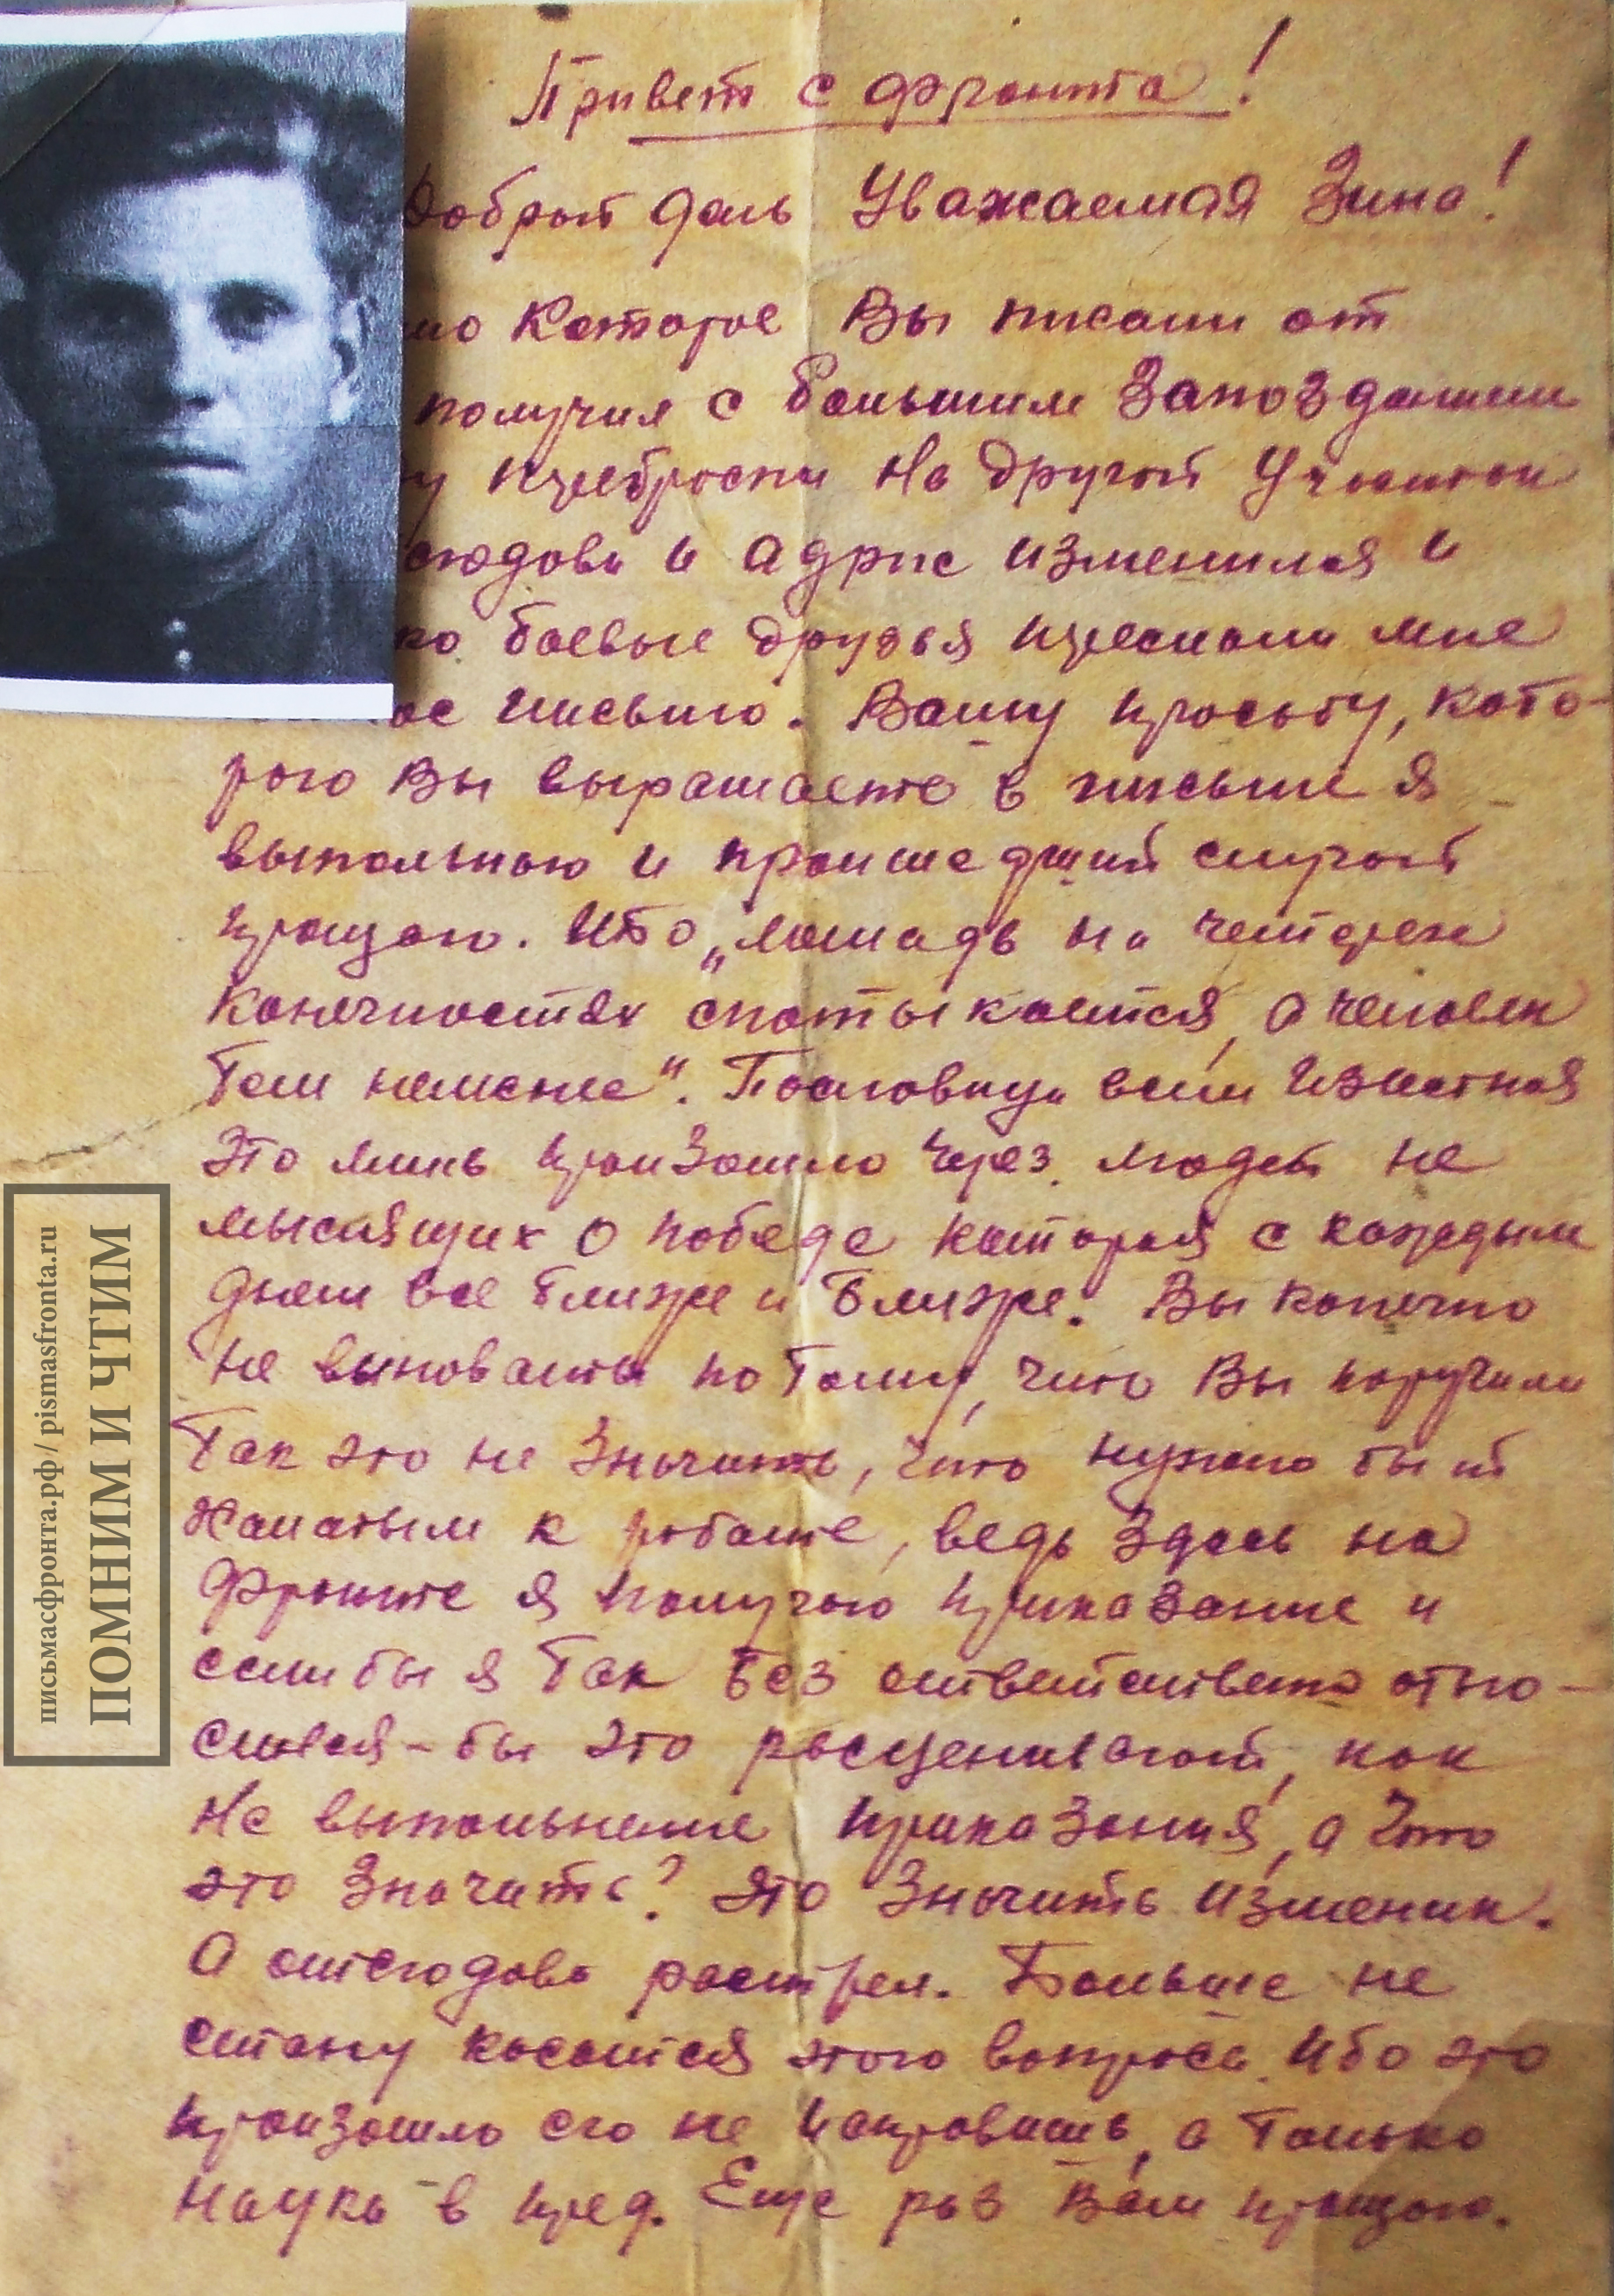 Привет с фронта!
Добрый день Уважаемая Зина!
мо которое Вы писали от
получил с большим запозданием
у переброски на другой участок
сюдова и адрис изменился и
ко боевые друзья переслали мне
ое письмо. Вашу просьбу, кото-
рого Вы выражаете в письме я
выпольною и происшедший случай
прощаю. Ибо „лошадь на четырех
конечностях спотыкается, а человек
тем неменее". Пословица всем известная
Это лишь произошло через людей не
мыслящих о победе которая с каждым
днем все ближе и ближе. Вы конечно
не виноваты потому, что Вы поручили
Так это не значить, что нужно быт
халатым к работе, ведь здесь на
фронте я получаю приказание и
если бы я так без ответствено отно-
сился-бы это расценивают, как
не выпольнение приказания, а что
это значить? Это значить изменик.
А отсюдова растрел. Больше не
стану касатся этого вопроса. Ибо это
произошло его не исправишь, а только
наука в пред. Еще раз Вам прощаю.
письмасфронта.рф / pismasfronta.ru
ПОМНИМ И ЧТИМ